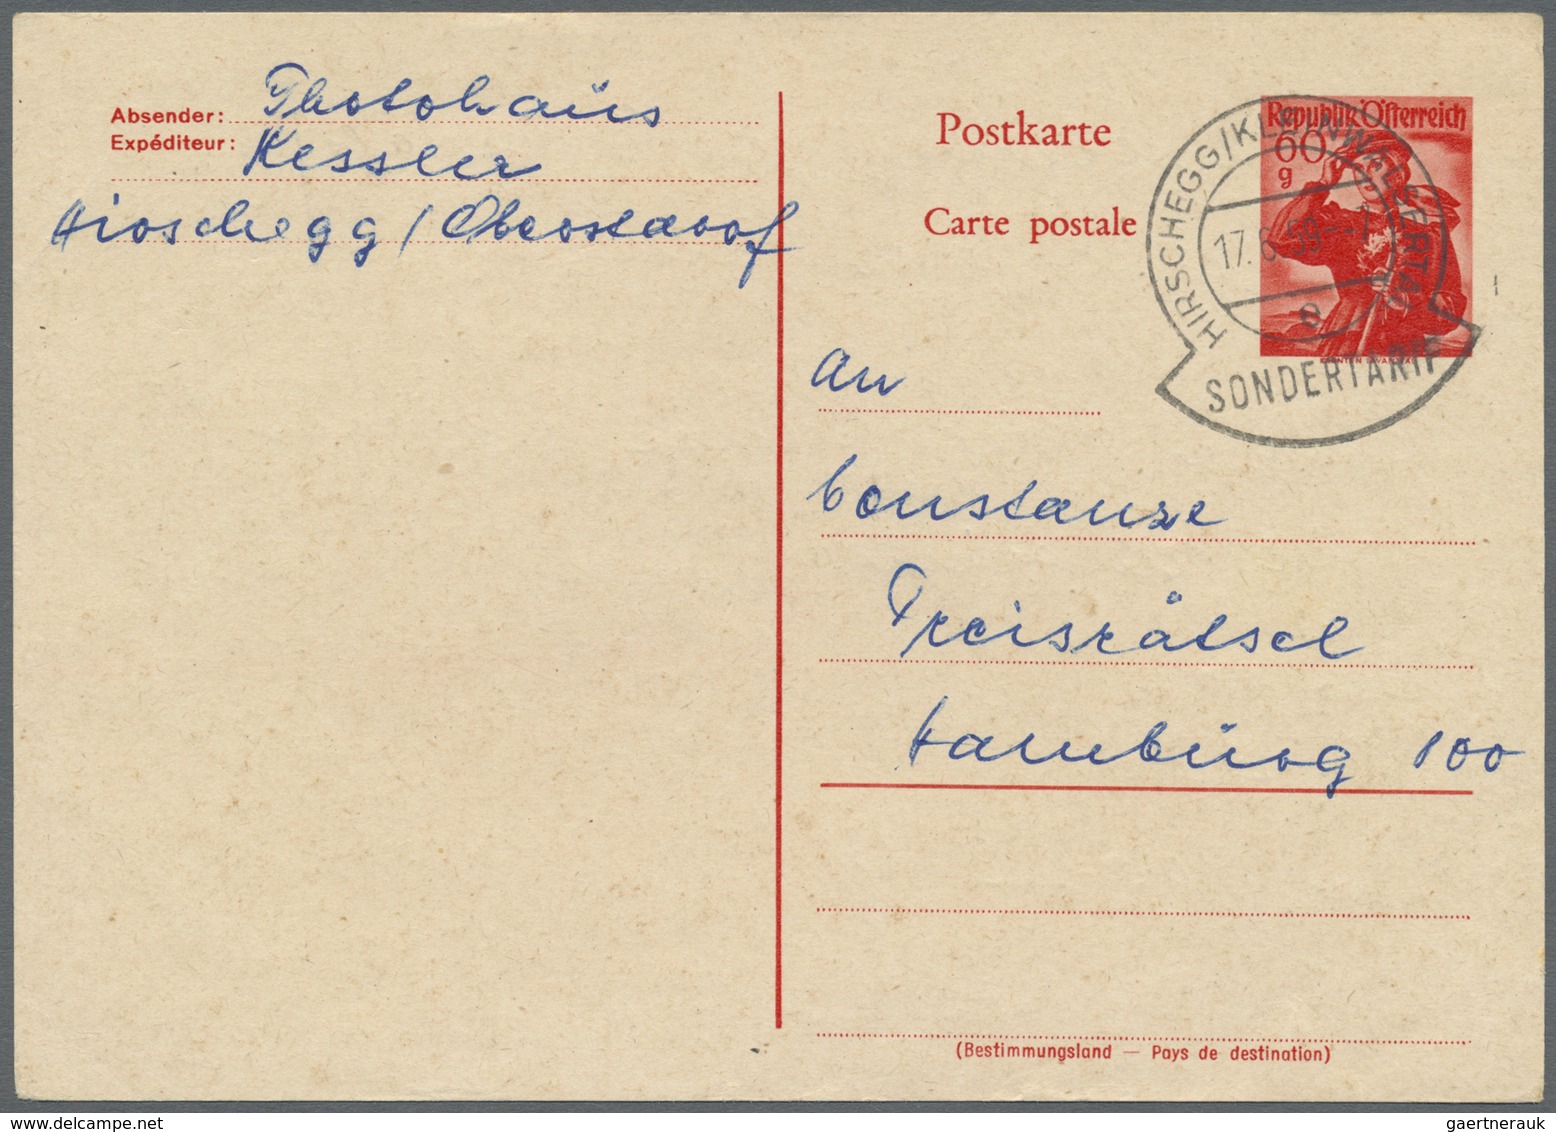 Absender: Photohaus
Expéditeur: Kessler
Hirschegg / Oberstdorf
Postkarte
Carte postale
Republik Österreich
60
g
HIRSCHEGG/KLEINWALSERTAL
17.6.59--1
e
SONDERTARIF
An
Constanze
Preisrätsel
Hamburg 100
(Bestimmungsland — Pays de destination)
gaertnerauk@delcampe.net